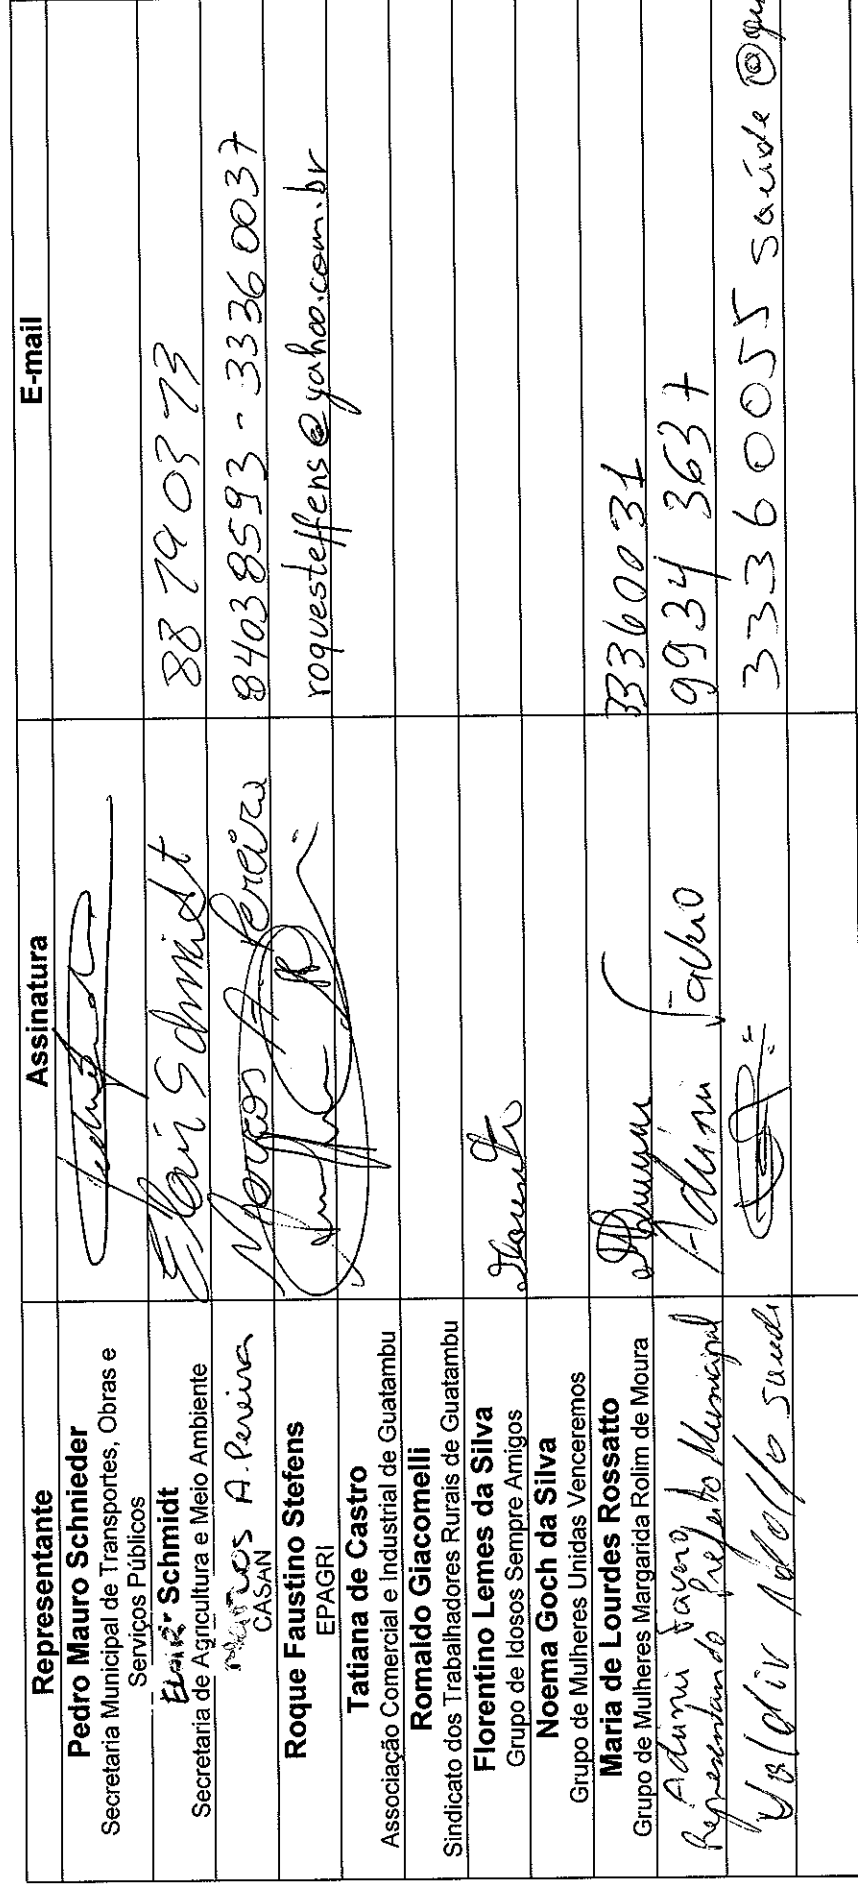 Representante
Assinatura
E-mail
Pedro Mauro Schnieder
Secretaria Municipal de Transportes, Obras e
Serviços Públicos
Elair Schmidt
Secretaria de Agricultura e Meio Ambiente
Elair Schmidt
88 79 03 73
Marcos A. Pereira
CASAN
Marcos A. Pereira
8403 8593 - 3336 0037
Roque Faustino Stefens
EPAGRI
roquesteffens@yahoo.com.br
Tatiana de Castro
Associação Comercial e Industrial de Guatambu
Romaldo Giacomelli
Sindicato dos Trabalhadores Rurais de Guatambu
Florentino Lemes da Silva
Grupo de Idosos Sempre Amigos
Noema Goch da Silva
Grupo de Mulheres Unidas Venceremos
Maria de Lourdes Rossatto
Grupo de Mulheres Margarida Rolim de Moura
33360031
Favero
Representando Prefeito Municipal
9934 3637
33360055 saúde @